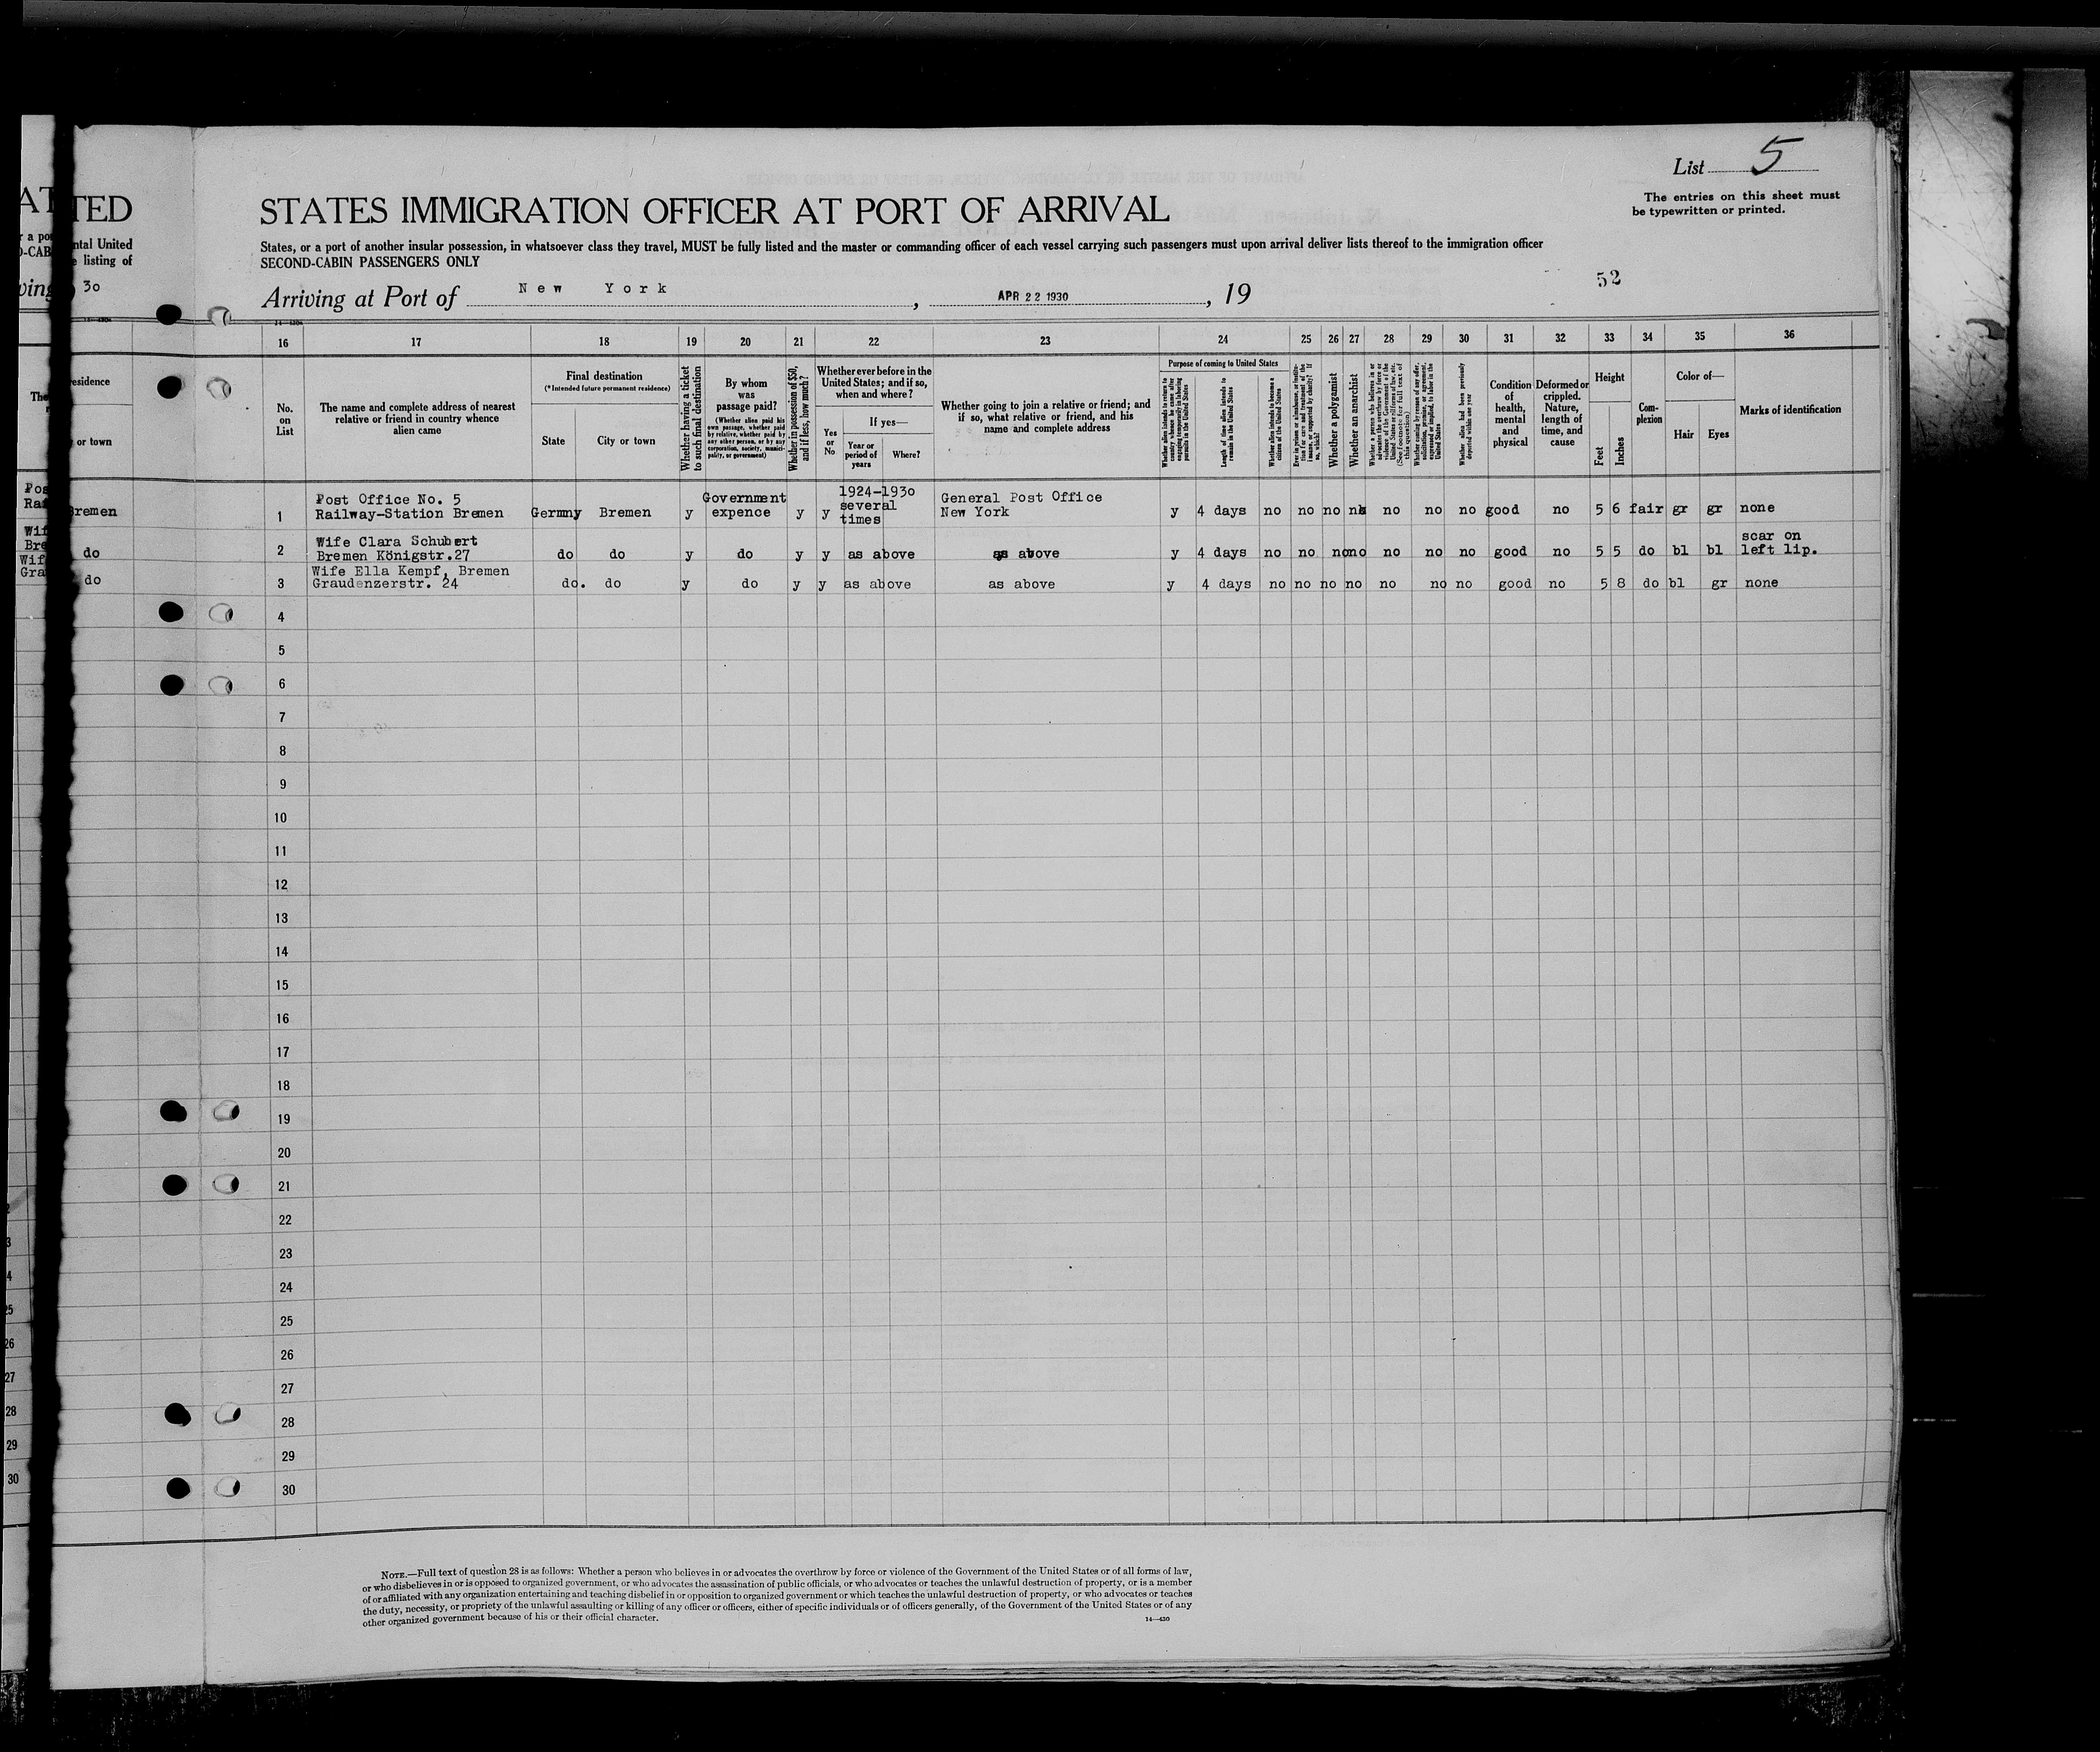 List 5
The entries on this sheet must
be typewritten or printed.
STATES IMMIGRATION OFFICER AT PORT OF ARRIVAL
States, or a port of another insular possession, in whatsoever class they travel, MUST be fully listed and the master or commanding officer of each vessel carrying such passengers must upon arrival deliver lists thereof to the immigration officer
SECOND-CABIN PASSENGERS ONLY
52
Arriving at Port of New York, APR 22 1930, 19
TED
ntal United
listing of
30
16 17 18 19 20 21 22 23 24 25 26 27 28 29 30 31 32 33 34 35 36
esidence
or town
No.
on
List
The name and complete address of nearest
relative or friend in country whence
alien came
Final destination
(*Intended future permanent residence)
State
City or town
Whether having a ticket
to such final destination
By whom
was
passage paid?
(Whether alien paid his
own passage, whether paid
by relative, whether paid by
any other person, or by any
corporation, society, munici-
pality, or government)
Whether in possession of $50,
and if less, how much?
Whether ever before in the
United States; and if so,
when and where?
Yes
or
No
If yes—
Year or
period of
years
Where?
Whether going to join a relative or friend; and
if so, what relative or friend, and his
name and complete address
Purpose of coming to United States
Whether alien intends to return to
country whence he came after
engaging temporarily in laboring
pursuits in the United States
Length of time alien intends to
remain in the United States
Whether alien intends to become a
citizen of the United States
Ever in prison or almshouse, or institu-
tion for care and treatment of the
insane, or supported by charity? If
so, which?
Whether a polygamist
Whether an anarchist
Whether a person who believes in or
advocates the overthrow by force or
violence of the Government of the
United States or all forms of law, etc.
(See footnote for full text of
this question)
Whether coming by reason of any offer,
solicitation, promise, or agreement,
expressed or implied, to labor in the
United States
Whether alien had been previously
deported within one year
Condition
of
health,
mental
and
physical
Deformed or
crippled.
Nature,
length of
time, and
cause
Height
Feet
Inches
Com-
plexion
Color of—
Hair
Eyes
Marks of identification
Bremen
1 Post Office No. 5
Railway-Station Bremen Germny Bremen y Government
expence y y 1924-1930
several
times General Post Office
New York y 4 days no no no no no no good no 5 6 fair gr gr none
do 2 Wife Clara Schubert
Bremen Königstr.27 do do y do y y as above as above y 4 days no no no no no no no good no 5 5 do bl bl scar on
left lip.
do 3 Wife Ella Kempf, Bremen
Graudenzerstr. 24 do. do y do y y as above as above y 4 days no no no no no no no good no 5 8 do bl gr none
4
5
6
7
8
9
10
11
12
13
14
15
16
17
18
19
20
21
22
23
24
25
26
27
28
29
30
NOTE.—Full text of question 28 is as follows: Whether a person who believes in or advocates the overthrow by force or violence of the Government of the United States or of all forms of law,
or who disbelieves in or is opposed to organized government, or who advocates the assassination of public officials, or who advocates or teaches the unlawful destruction of property, or is a member
of or affiliated with any organization entertaining and teaching disbelief in or opposition to organized government or which teaches the unlawful destruction of property, or who advocates or teaches
the duty, necessity, or propriety of the unlawful assaulting or killing of any officer or officers, either of specific individuals or of officers generally, of the Government of the United States or of any
other organized government because of his or their official character.
14—430